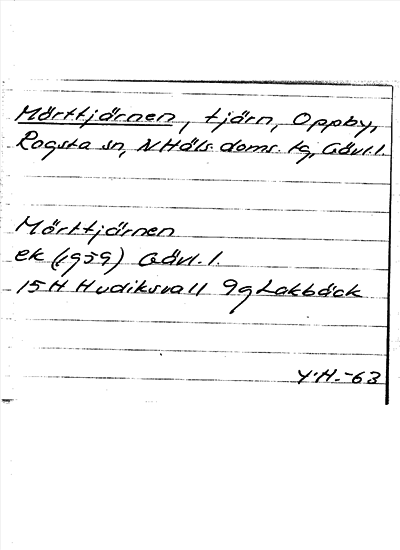 Mörttjärnen, tjärn, Oppby,
Rogsta sn, N Häls. doms. tg, Gävl. l.
Mörttjärnen
ek (1959) Gävl. l.
15H Hudiksvall 9g Lakbäck
Y.H. -63